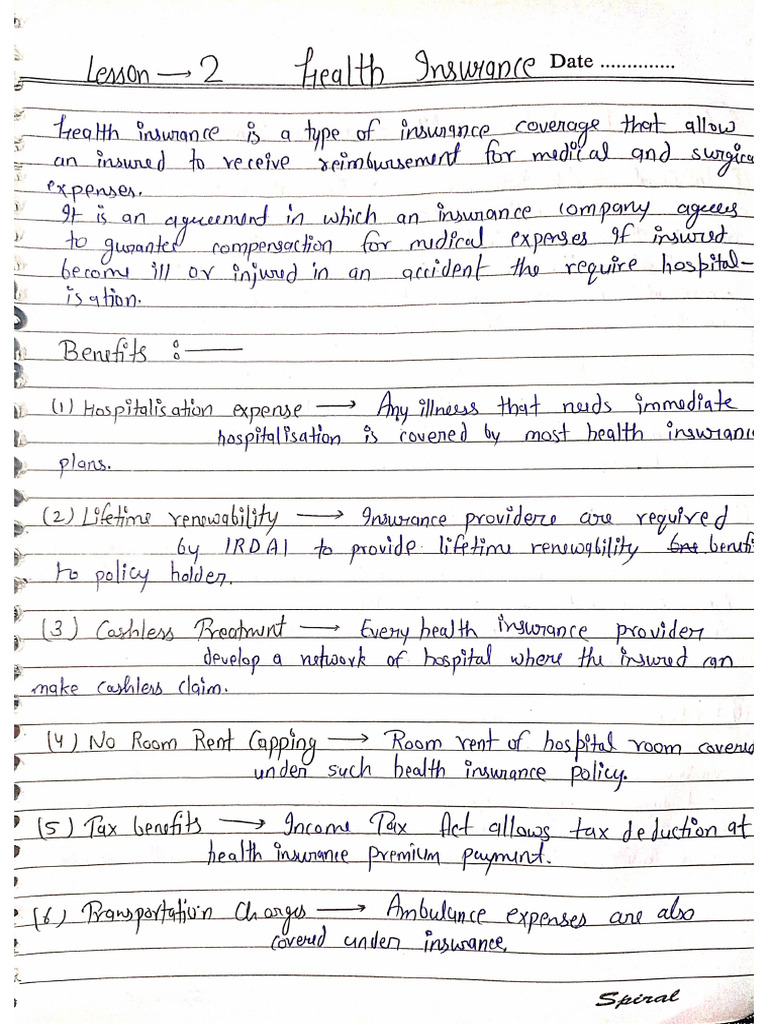 Lesson → 2 Health Insurance Date ..............
Health insurance is a type of insurance coverage that allow
an insured to receive reimbursement for medical and surgica
expenses.
It is an agreement in which an insurance company agrees
to gurantee compensaction for medical expenses if insured
become ill or injured in an accident the require hospital-
isation.
Benefits :—
(1) Hospitalisation expense → Any illness that needs immediate
hospitalisation is covered by most health insuranc
plans.
(2) Lifetime renewability → Insurance providere are required
by IRDAI to provide lifetime renewability benefi
to policy holder.
(3) Cashless Treatment → Every health insurance provider
develop a network of hospital where the insured can
make cashless claim.
(4) No Room Rent Capping → Room rent of hospital room covered
under such health insurance policy.
(5) Tax benefits → Income Tax Act allows tax deduction at
health insurance premium payment.
(6) Transportation Charges → Ambulance expenses are also
covered under insurance.
Spiral